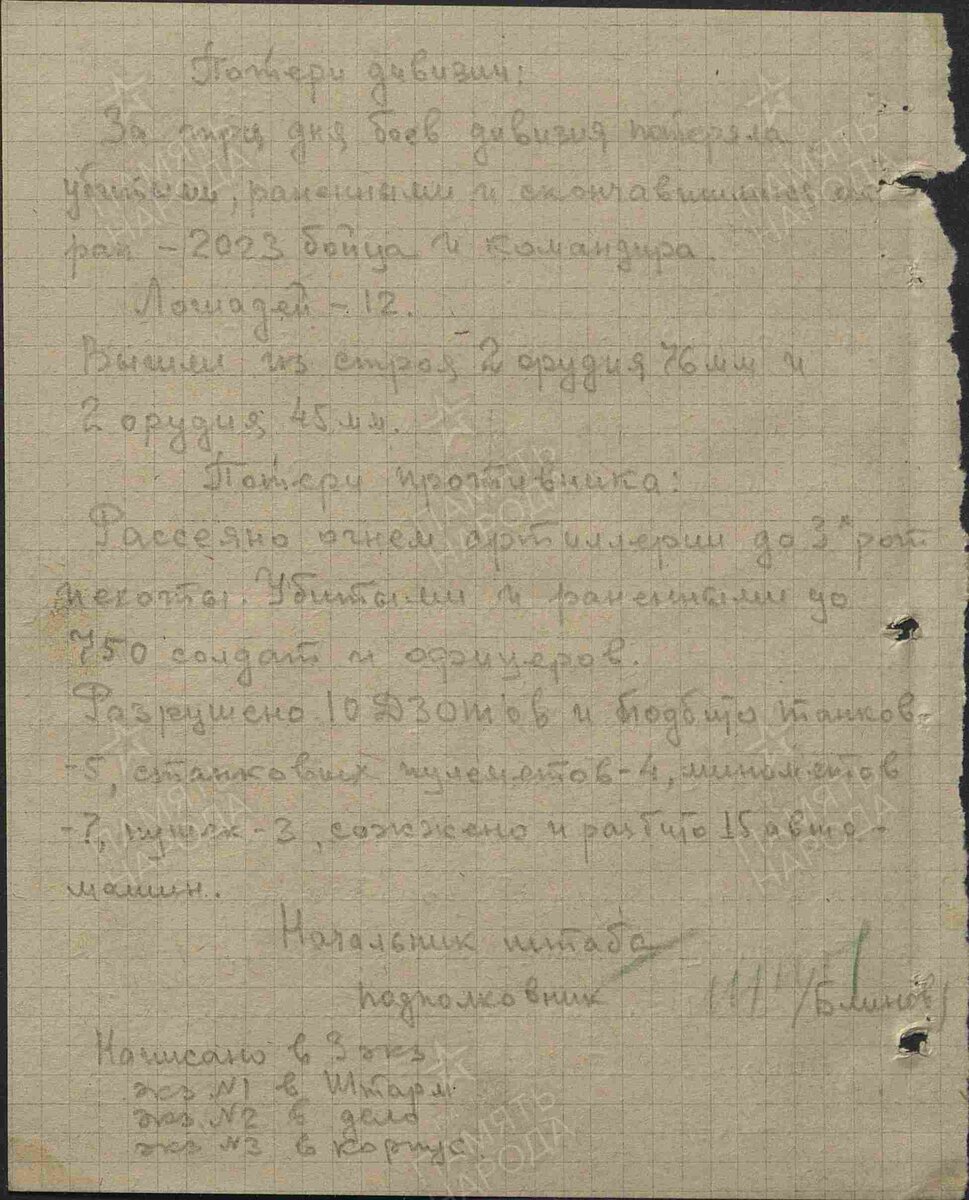 Потери дивизии:
За три дня боев дивизия потеряла
убитыми, раненными и скончавшимися от
ран - 2023 бойца и командира.
Лошадей - 12.
Вышли из строя 2 орудия 76 мм и
2 орудия 45 мм.
Потери противника:
Рассеяно огнем артиллерии до 3х рот
пехоты. Убитыми и раненными до
750 солдат и офицеров.
Разрушено 10 ДЗОТов и подбито танков-
-5, станковых пулеметов-4, минометов
-7, пушек-3, сожжено и разбито 15 авто-
машин.
Начальник штаба
подполковник /Блинов/
Написано в 3 экз
экз №1 в Штарм
экз №2 в дело
экз №3 в корпус.
ПАМЯТЬ НАРОДА